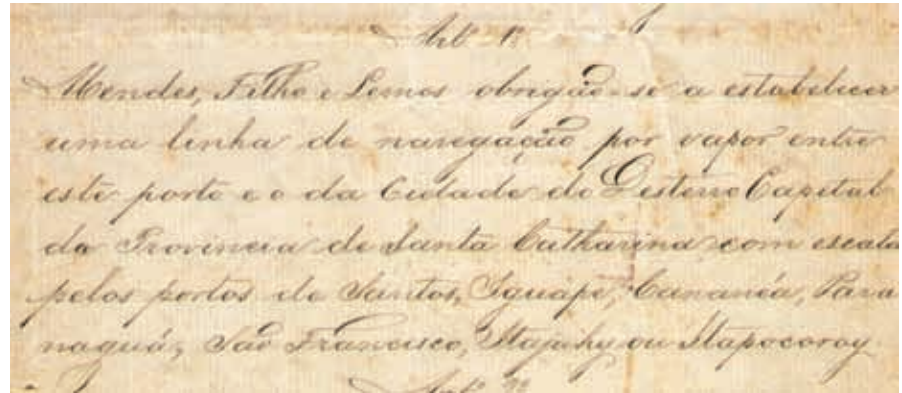 Art. 1º
Mendes, Filho e Lemos obrigão-se a estabelecer
uma linha de navegação por vapor entre
este porto e o da Cidade do Desterro Capital
da Provincia de Santa Catharina com escala
pelos portos de Santos, Iguápe, Cananéa, Para
naguá, São Francisco, Itajahy ou Itapocoroy.
Art.